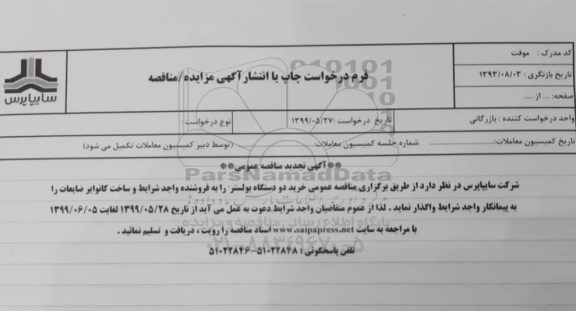 کد مدرک : موقت
تاریخ بازنگری : ۱۳۹۳/۰۸/۰۳
صفحه: ... از ....
فرم درخواست چاپ یا انتشار آگهی مزایده/مناقصه
سایپاپرس
واحد درخواست کننده : بازرگانی
تاریخ درخواست : ۱۳۹۹/۰۵/۲۷
نوع درخواست :
تاریخ کمیسیون معاملات: شماره جلسه کمیسیون معاملات (توسط دبیر کمیسیون معاملات تکمیل می شود)
**آگهی تجدید مناقصه عمومی**
ParsNamadData
شرکت سایپاپرس در نظر دارد از طریق برگزاری مناقصه عمومی خرید دو دستگاه بولستر را به فروشنده واجد شرایط و ساخت کانوایر ضایعات را
به پیمانکار واجد شرایط واگذار نماید . لذا از عموم متقاضیان واجد شرایط دعوت به عمل می آید از تاریخ ۱۳۹۹/۰۵/۲۸ لغایت ۱۳۹۹/۰۶/۰۵
با مراجعه به سایت www.saipapress.net اسناد مناقصه را رویت ، دریافت و تسلیم نمائید .
تلفن پاسخگوئی : ۵۱۰۲۲۸۴۸-۵۱۰۲۲۸۴۶